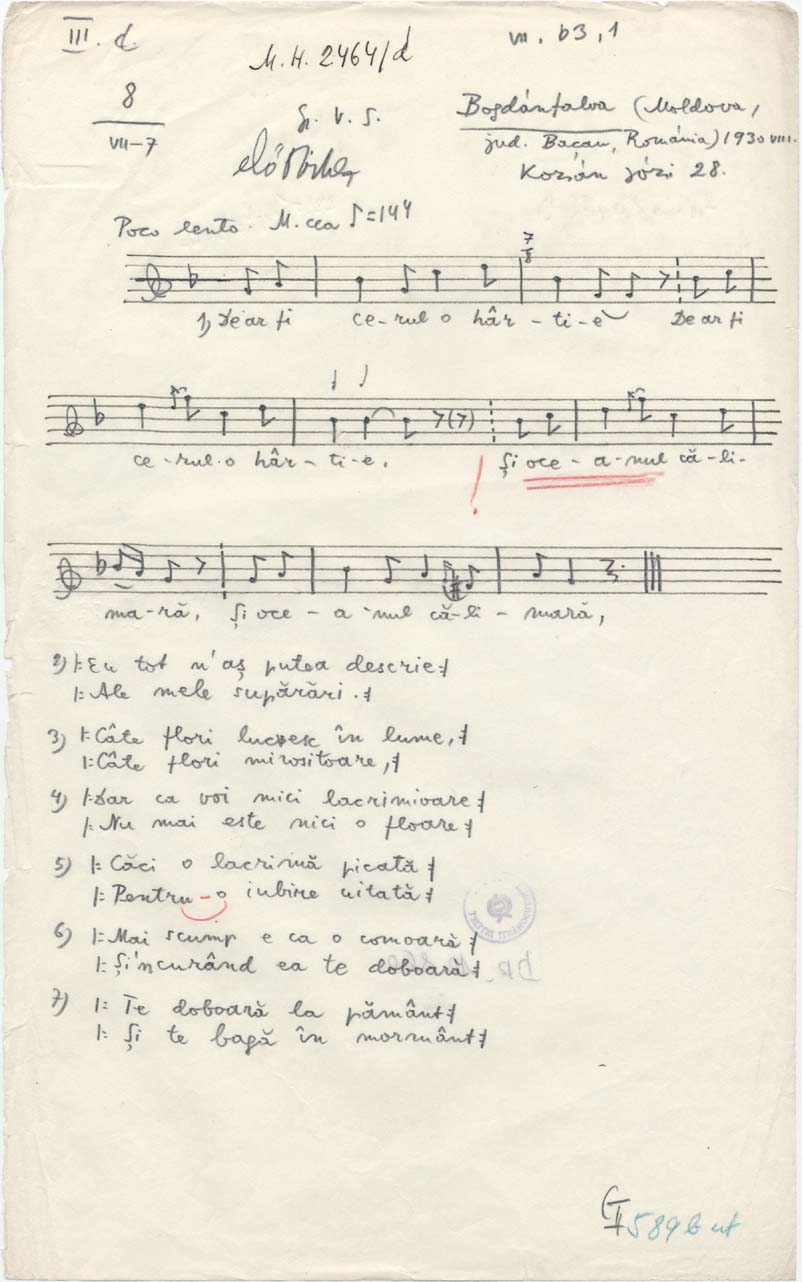 III. d.
M.H. 2464/d
VII. b3, 1
8
VII-7
Gr. V. S.
Bogdánfalva (Moldova,
jud. Bacau, România) 1930 VIII.
Kozsán Józsi 28.
Poco lento. M. cca ♪=144
7
8
1) De ar fi ce-rul o hâr-ti-e De ar fi
ce-rul o hâr-ti-e, Și oce-a-nul că-li-
ma-ră, Și oce-a-nul că-li-mară,
2) |: Eu tot n'aș putea descrie :|
|: Ale mele supărări. :|
3) |: Câte flori lucesc în lume, :|
|: Câte flori mirositoare, :|
4) |: Dar ca voi mici lacrimioare :|
|: Nu mai este nici o floare :|
5) |: Căci o lacrimă picată :|
|: Pentru-o iubire uitată :|
6) |: Mai scump e ca o comoară :|
|: Și'ncurând ea te doboară :|
7) |: Te doboară la pământ :|
|: Și te bagă în mormânt :|
589 b ut